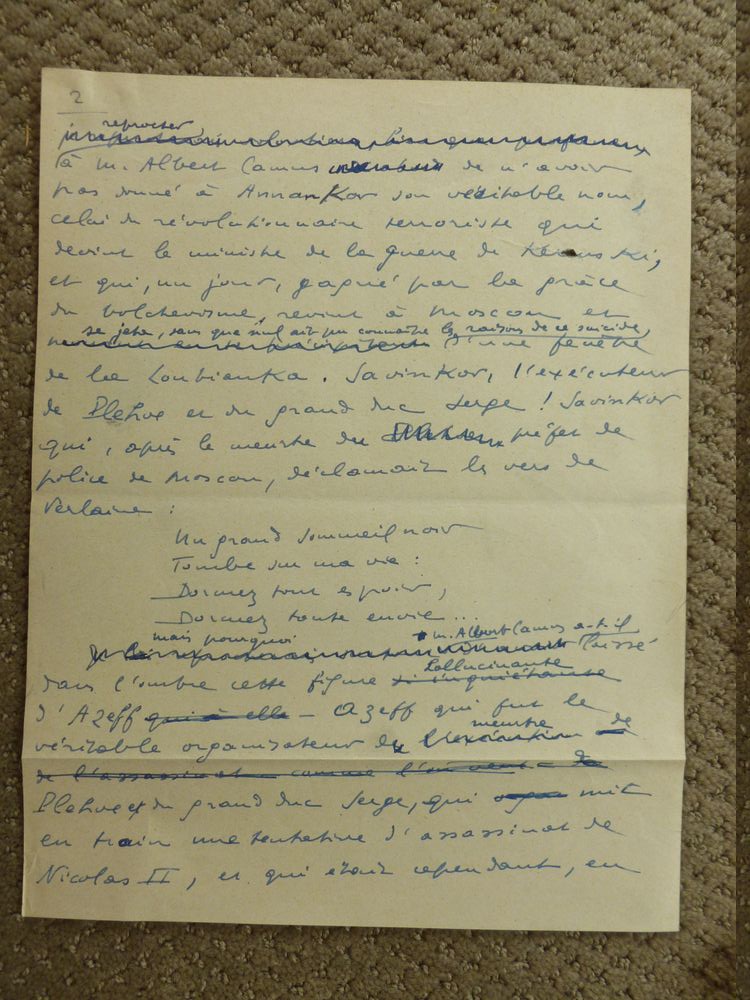 2
reprocher
à M. Albert Camus de n'avoir
pas donné à Annankov son véritable nom,
celui du révolutionnaire terroriste qui
devint le ministre de la guerre de Kerenski,
et qui, un jour, gagné par la grâce
du bolchevisme, revint à Moscou et
se jeta, sans que nul ait pu connaître les raisons de ce suicide,
d'une fenêtre
de la Loubianka. Savinkov, l'exécuteur
de Plehve et du grand duc Serge ! Savinkov
qui, après le meurtre du préfet de
police de Moscou, déclamait les vers de
Verlaine :
Un grand sommeil noir
Tombe sur ma vie :
Dormez tout espoir,
Dormez toute envie...
mais pourquoi M. Albert Camus a-t-il
laissé
hallucinante
dans l'ombre cette figure si inquiétante
d'Azeff qui à elle – Azeff qui fut le
meurtre
véritable organisateur du l'exécution de
de l'assassinat comme
Plehve et du grand duc Serge, qui mit
en train une tentative d'assassinat de
Nicolas II, et qui était cependant, en